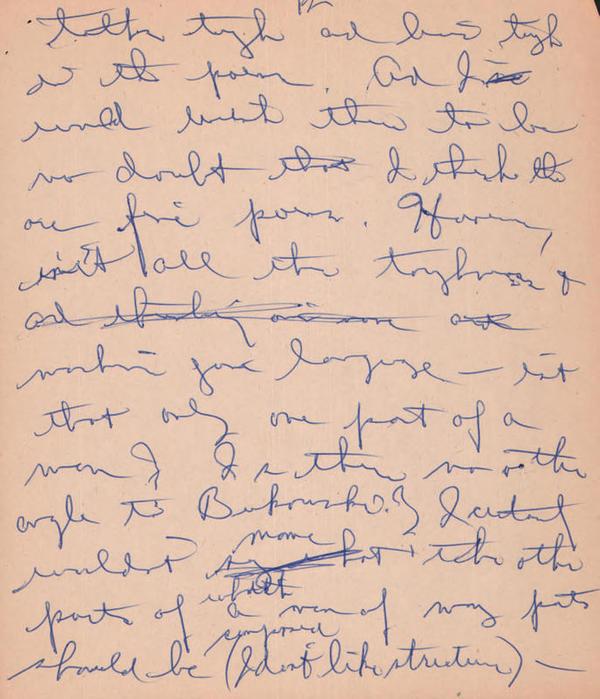 talks tough and lives tough
in the poem. And I
would wish there to be
no doubt that I think the
are fine poems. However,
isn't all the toughness &
and
your language — isn't
that only one part of a
man? Is there no other
angle to Bukowski? I certainly
wouldn't name what the other
parts of a man of many parts
should be (I don't like structure) —